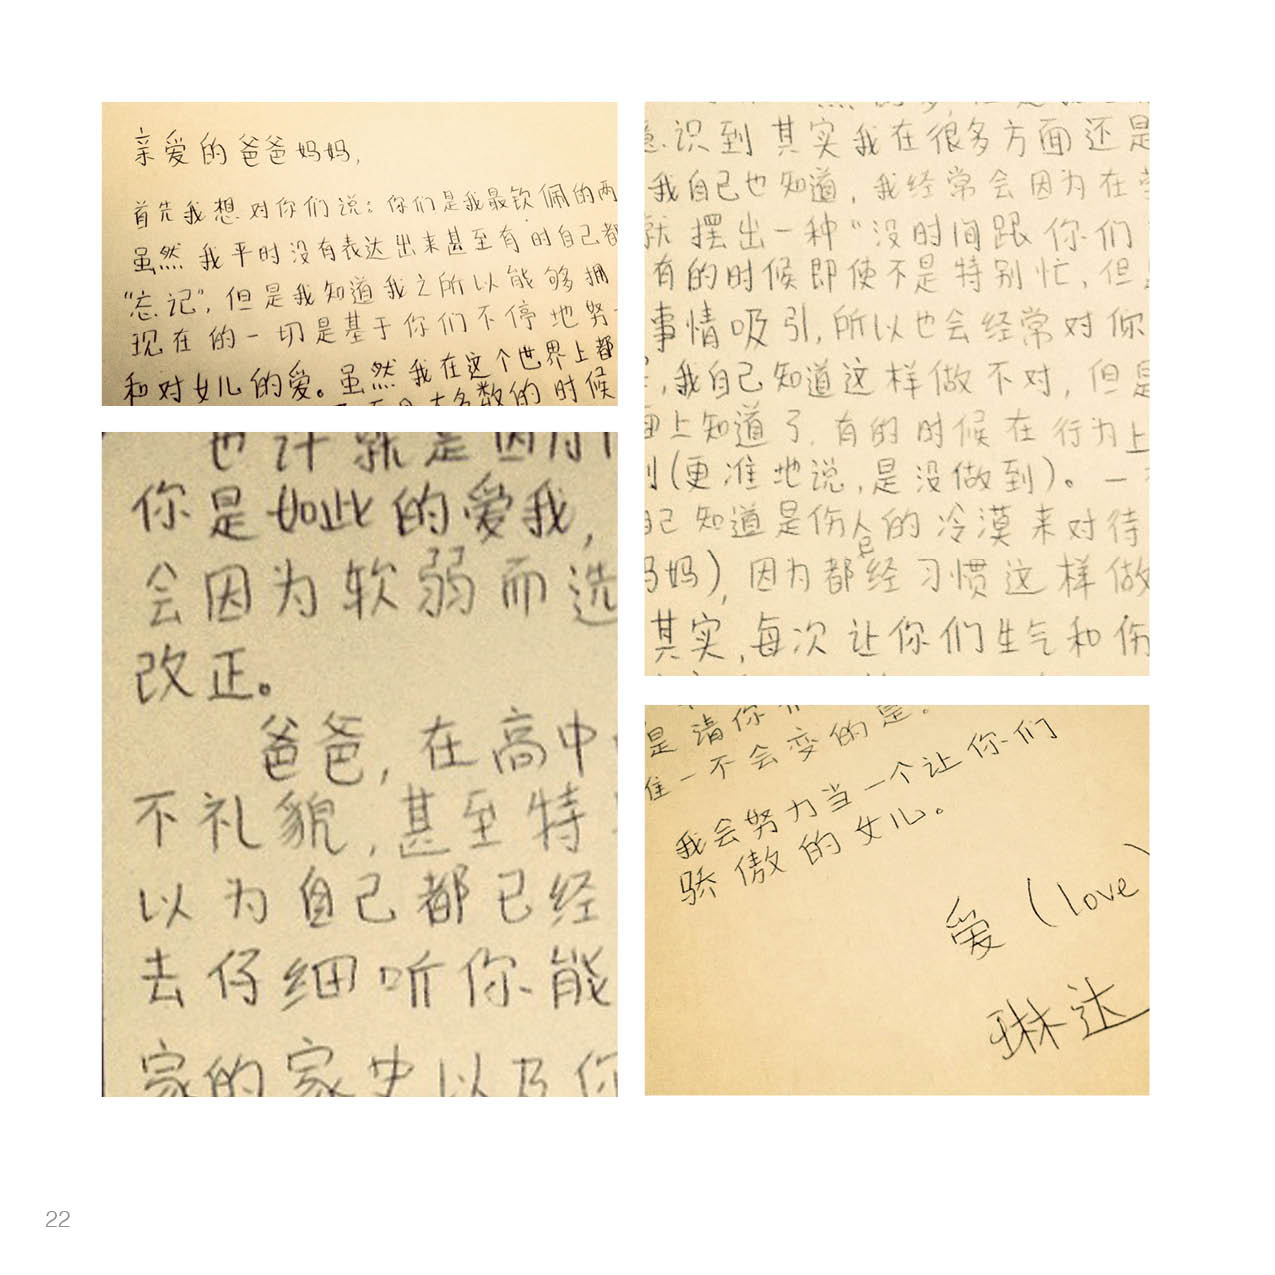 亲爱的爸爸妈妈，
首先我想对你们说：你们是我最钦佩的两
虽然我平时没有表达出来甚至有时自己都
“忘记”，但是我知道我之所以能够拥
现在的一切是基于你们不停地努
和对女儿的爱。虽然我在这个世界上都
大多数的时候
也许就是因为
你是如此的爱我，
会因为软弱而选
改正。
爸爸，在高中
不礼貌，甚至特
以为自己都已经
去仔细听你能
家的家史以及你
意识到其实我在很多方面还是
我自己也知道，我经常会因为在
就摆出一种“没时间跟你们
有的时候即使不是特别忙，但
事情吸引，所以也会经常对你
，我自己知道这样做不对，但是
面上知道了，有的时候在行为上
到（更准地说，是没做到）。一
自己知道是伤人的冷漠来对待
妈妈），因为都已经习惯这样做
其实，每次让你们生气和伤
是请你们
唯一不会变的是。
我会努力当一个让你们
骄傲的女儿。
爱（love）
琳达
22